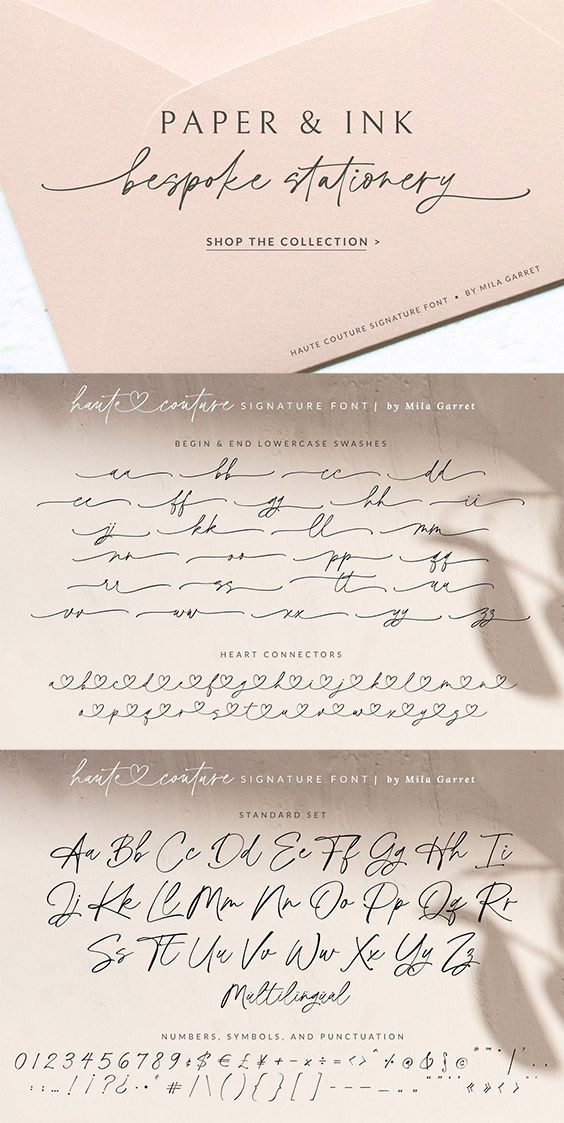 PAPER & INK
bespoke stationery
SHOP THE COLLECTION >
HAUTE COUTURE SIGNATURE FONT • BY MILA GARRET
haute couture SIGNATURE FONT | by Mila Garret
BEGIN & END LOWERCASE SWASHES
aa bb cc dd
ee ff gg hh ii
jj kk ll mm
nn oo pp qq
rr ss tt uu
vv ww xx yy zz
HEART CONNECTORS
a♡b♡c♡d♡e♡f♡g♡h♡i♡j♡k♡l♡m♡n♡
o♡p♡q♡r♡s♡t♡u♡v♡w♡x♡y♡z♡
haute couture SIGNATURE FONT | by Mila Garret
STANDARD SET
Aa Bb Cc Dd Ee Ff Gg Hh Ii
Jj Kk Ll Mm Nn Oo Pp Qq Rr
Ss Tt Uu Vv Ww Xx Yy Zz
Multilingual
NUMBERS, SYMBOLS, AND PUNCTUATION
0123456789&$€£¥+-×÷=<>^
:;…!¡?¿··*#/\(){}[]